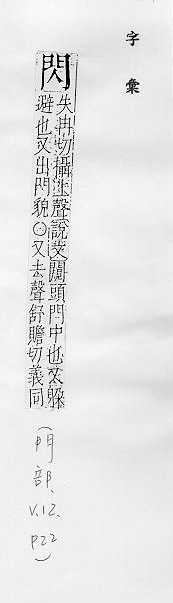 字彙
閃
失冉切攝上聲說文闚頭門中也又躲
避也又出門貌〇又去聲舒贍切義同
(門部、
V.12.
P22)